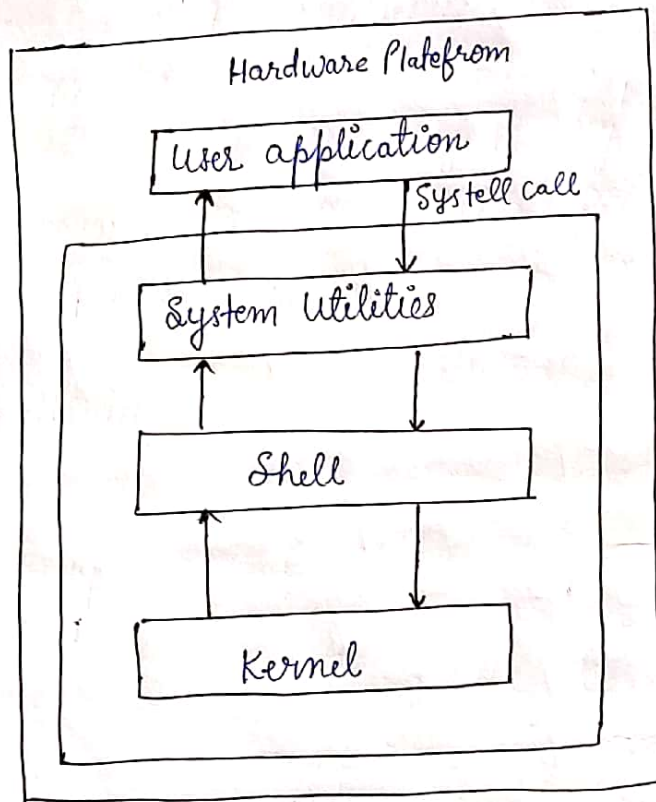 Hardware Platefrom
User application
Systell call
System Utilities
Shell
Kernel